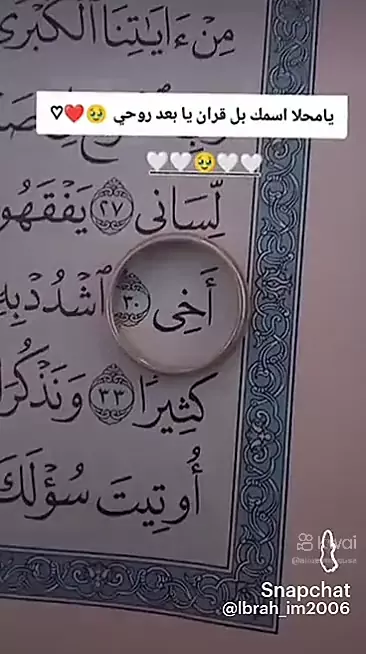 مِنْ ءَايَٰتِنَا ٱلْكُبْرَى
يامحلا اسمك بل قران يا بعد روحي 🥹❤️♡
🤍🤍🥹🤍🤍
لِّسَانِى ٢٧ يَفْقَهُوا
أَخِى ٣٠ ٱشْدُدْ بِهِ
كَثِيرًا ٣٣ وَنَذْكُرَ
أُوتِيتَ سُؤْلَكَ
Snapchat
@Ibrah_im2006